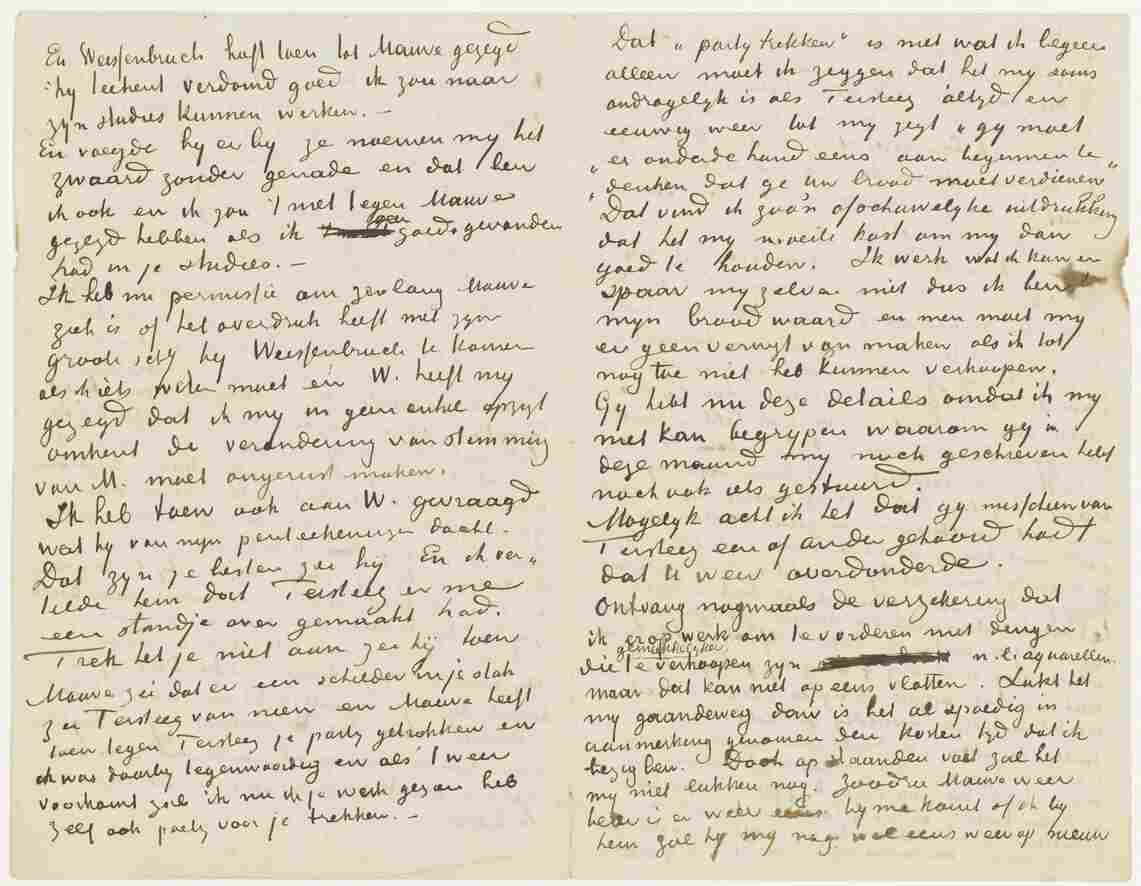 En Weissenbruch heeft toen tot Mauve gezegd
hy teekent verdomd goed ik zou naar
zyn studies kunnen werken. —
En voegde hy er by ze noemen my het
zwaard zonder genade en dat ben
ik ook en ik zou 't niet tegen Mauve
gezegd hebben als ik geen goeds gevonden
had in je studies. —
Ik heb nu permissie om zoolang Mauve
ziek is of het overdruk heeft met zyn
groote schy by Weissenbruch te komen
als ik iets weten moet en W. heeft my
gezegd dat ik my in geen enkel opzigt
omtrent de verandering van stemming
van M. moet ongerust maken.
Ik heb toen ook aan W. gevraagd
wat hy van myn penteekeningen dacht.
Dat zyn je besten zei hij En ik ver„
telde hem dat Tersteeg er me
een standje over gemaakt had.
Trek het je niet aan zei hij toen
Mauve zei dat er een schilder in je stak
zei Tersteeg van neen en Mauve heeft
toen tegen Tersteeg je party getrokken en
ik was daarby tegenwoordig en als 't weer
voorkomt zal ik nu ik je werk gezien heb
zelf ook party voor je trekken. —
Dat „party trekken" is niet wat ik begeer
alleen moet ik zeggen dat het my soms
ondragelyk is als Tersteeg altyd en
eeuwig weer tot my zegt „gy moet
„er onderdehand eens aan beginnen te
„denken dat ge uw brood moet verdienen"
Dat vind ik zoo'n afschuwelyke uitdrukking
dat het my moeite kost om my dan
goed te houden. Ik werk wat ik kan en
spaar my zelven niet dus ik ben
myn brood waard en men moet my
er geen verwyt van maken als ik tot
nog toe niet heb kunnen verkoopen.
Gy hebt nu deze details omdat ik my
niet kan begrypen waarom gy in
deze maand my noch geschreven hebt
noch ook iets gestuurd.
Mogelyk acht ik het dat gy misschien van
Tersteeg een of ander gehoord hadt
dat U weer overdonderde.
Ontvang nogmaals de verzekering dat
ik er op werk om te vorderen met dingen
die gemakkelyker te verkoopen zyn n.l. aquarellen.
maar dat kan niet op eens vlotten. Lukt het
my gaandeweg dan is het al spoedig in
aanmerking genomen den korten tyd dat ik
bezig ben. Doch op staanden voet zal het
my niet lukken nog. Zoodra Mauve weer
beter is en weer eens by me komt of ik by
hem zal hy my nog wel eens weer op nieuw